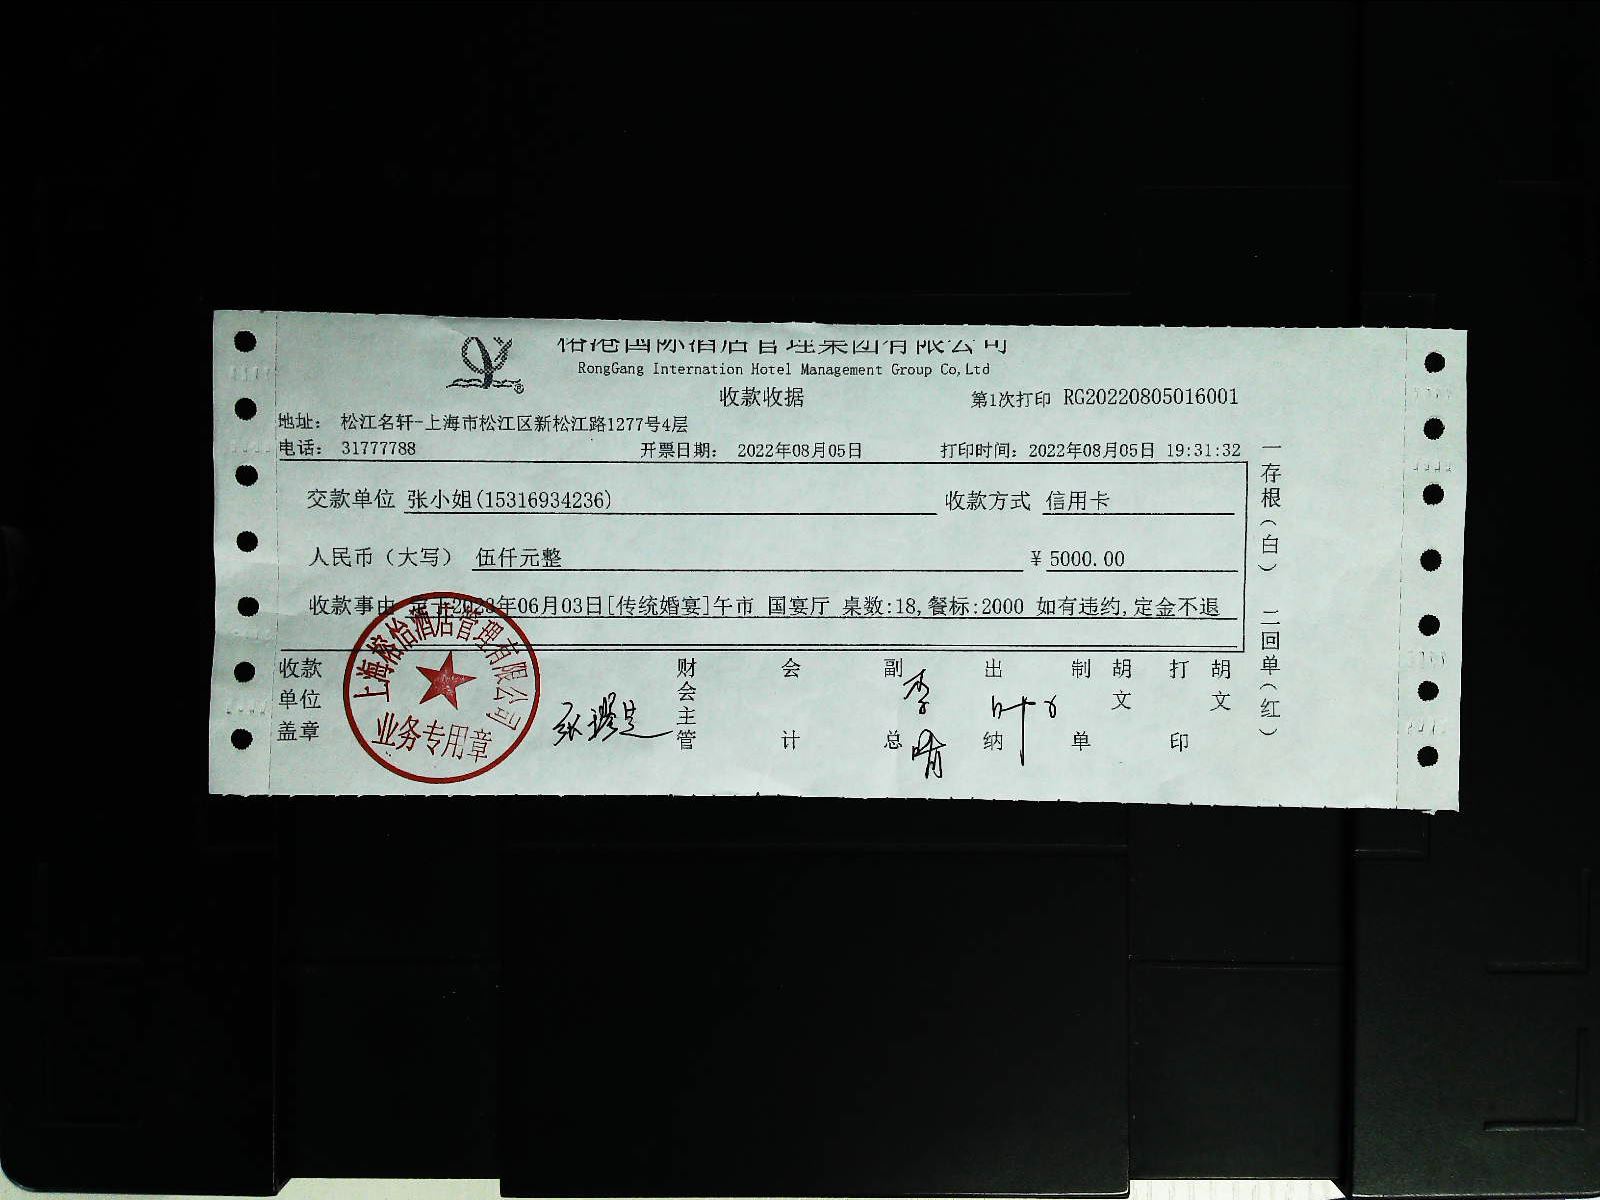 榕港国际酒店管理集团有限公司
RongGang Internation Hotel Management Group Co,Ltd
收款收据
第1次打印 RG20220805016001
地址: 松江名轩-上海市松江区新松江路1277号4层
电话: 31777788 开票日期: 2022年08月05日 打印时间: 2022年08月05日 19:31:32
交款单位 张小姐(15316934236) 收款方式 信用卡
人民币(大写) 伍仟元整 ¥ 5000.00
收款事由 定于2023年06月03日[传统婚宴]午市 国宴厅 桌数:18,餐标:2000 如有违约,定金不退
收款单位盖章
上海榕怡酒店管理有限公司
业务专用章
财会主管
会计
副总
出纳
制单 胡文
打印 胡文
一存根(白) 二回单(红)